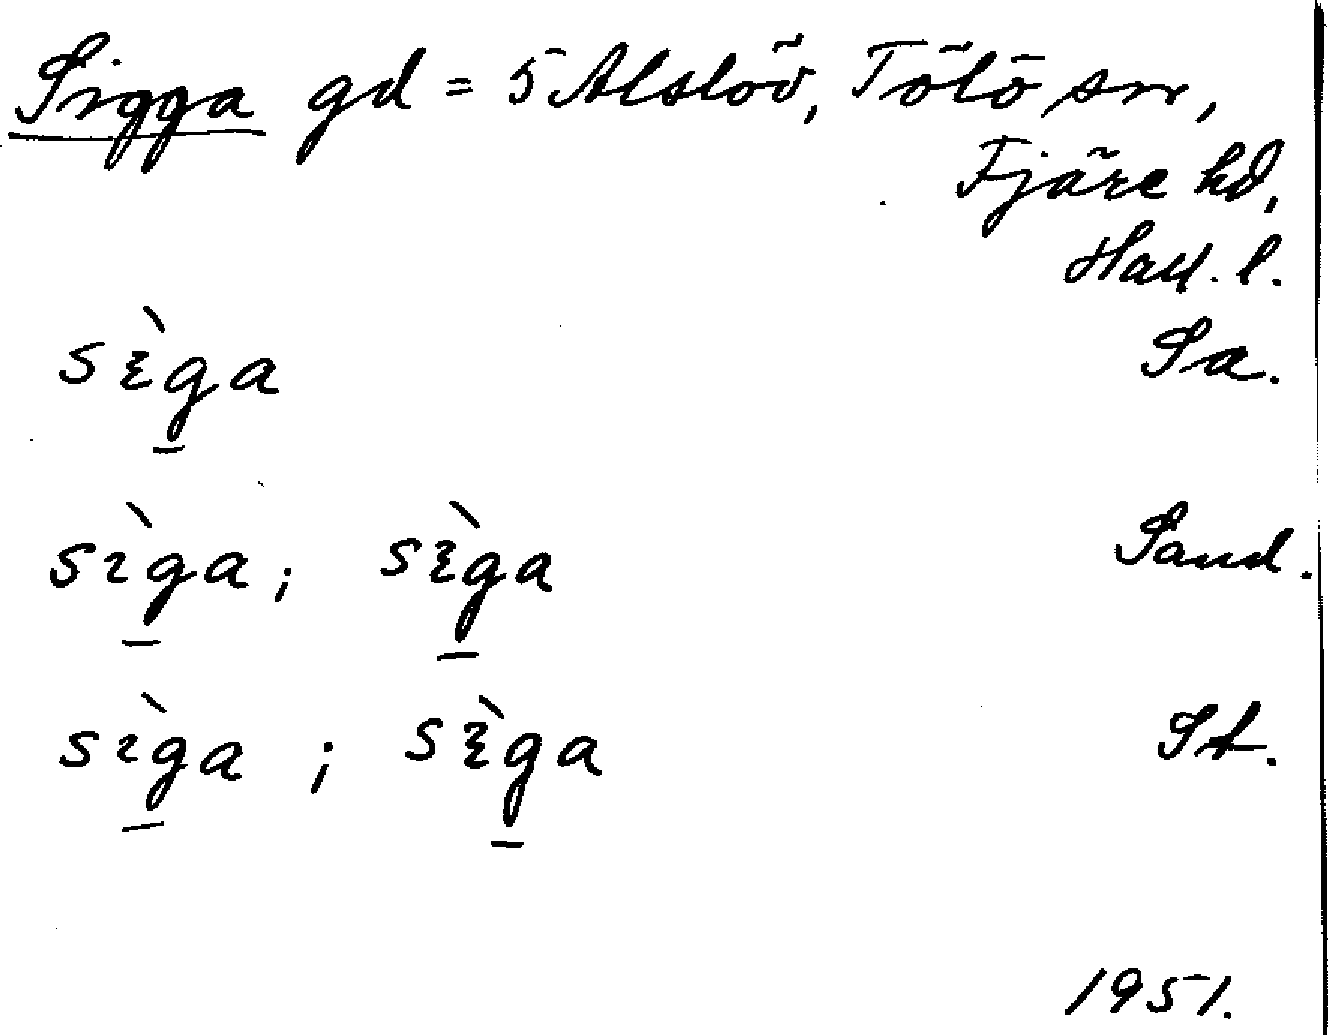 Sigga gd = 5 Alslöv, Tölö sn,
Fjäre hd,
Hall. l.
sɛ̀ga Sa.
sɩ̀ga; sɛ̀ga Sand.
sɩ̀ga; sɛ̀ga St.
1951.